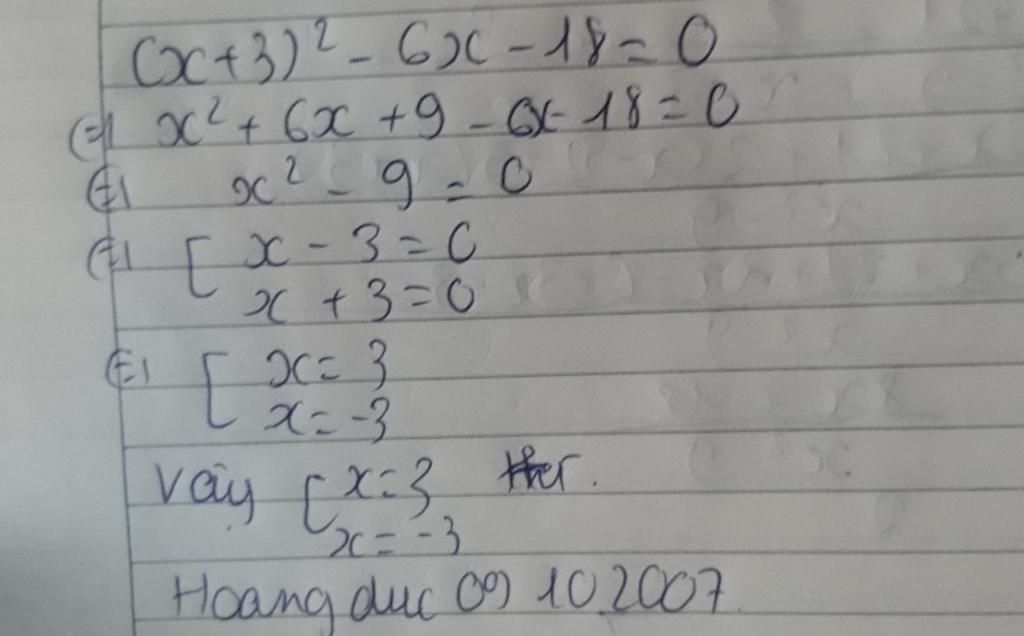 (x+3)² - 6x - 18 = 0
⇔ x² + 6x + 9 - 6x - 18 = 0
⇔ x² - 9 = 0
⇔ [ x - 3 = 0
x + 3 = 0
⇔ [ x = 3
x = -3
Vậy [ x = 3
x = -3
Hoang duc 09 10 2007